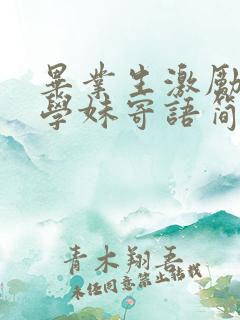 畢業生激勵
學妹寄語簡
青木翔吾
未经同意禁止转载